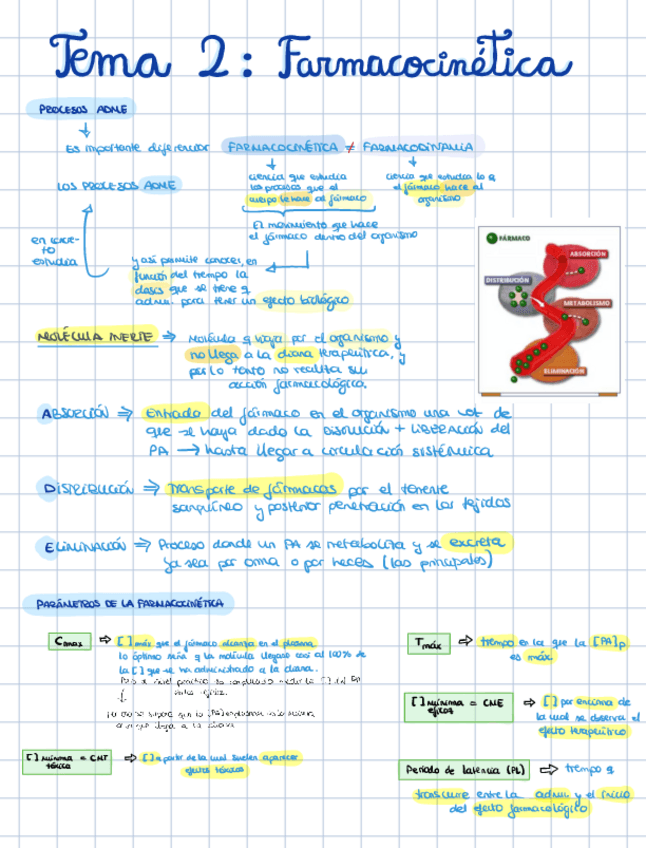 Tema 2: Farmacocinética
PROCESOS ADME
Es importante diferenciar FARMACOCINÉTICA ≠ FARMACODINAMIA
ciencia que estudia
los procesos que el
cuerpo le hace al fármaco
ciencia que estudia lo q
el fármaco hace al
organismo
LOS PROCESOS ADME
El movimiento que hace
el fármaco dentro del organismo
estudia
y así permite conocer, en
función del tiempo la
dosis que se tiene q
admu. para tener un efecto biológico
FÁRMACO
ABSORCIÓN
DISTRIBUCIÓN
METABOLISMO
ELIMINACIÓN
MOLÉCULA INERTE ⇒ Molécula q viaja por el organismo y
no llega a la diana terapeútica, y
por lo tanto no realiza su
acción farmacológica.
ABSORCIÓN ⇒ Entrada del fármaco en el organismo una vez de
que se haya dado la DISOLUCIÓN + LIBERACIÓN del
PA → hasta llegar a circulación sistémica
DISTRIBUCIÓN ⇒ Transporte de fármacos por el torrente
sanguíneo y posterior penetración en los tejidos
ELIMINACIÓN ⇒ Proceso donde un PA se metaboliza y se excreta
ya sea por orina o por heces (las principales)
PARÁMETROS DE LA FARMACOCINÉTICA
Cmax ⇒ [ ] máx que el fármaco alcanza en el plasma
lo óptimo sería q la molécula llegase casi al 100% de
la [ ] que se ha administrado a la diana.
Tmáx ⇒ tiempo en la que la [PA]p
es máx
[ ] mínima = CME
eficaz
⇒ [ ] por encima de
la cual se observa el
efecto terapéutico
[ ] mínima = CMT
tóxica
⇒ [ ] a partir de la cual suelen aparecer
efectos tóxicos
Periodo de latencia (PL) ⇒ tiempo q
transcurre entre la admu. y el inicio
del efecto farmacológico